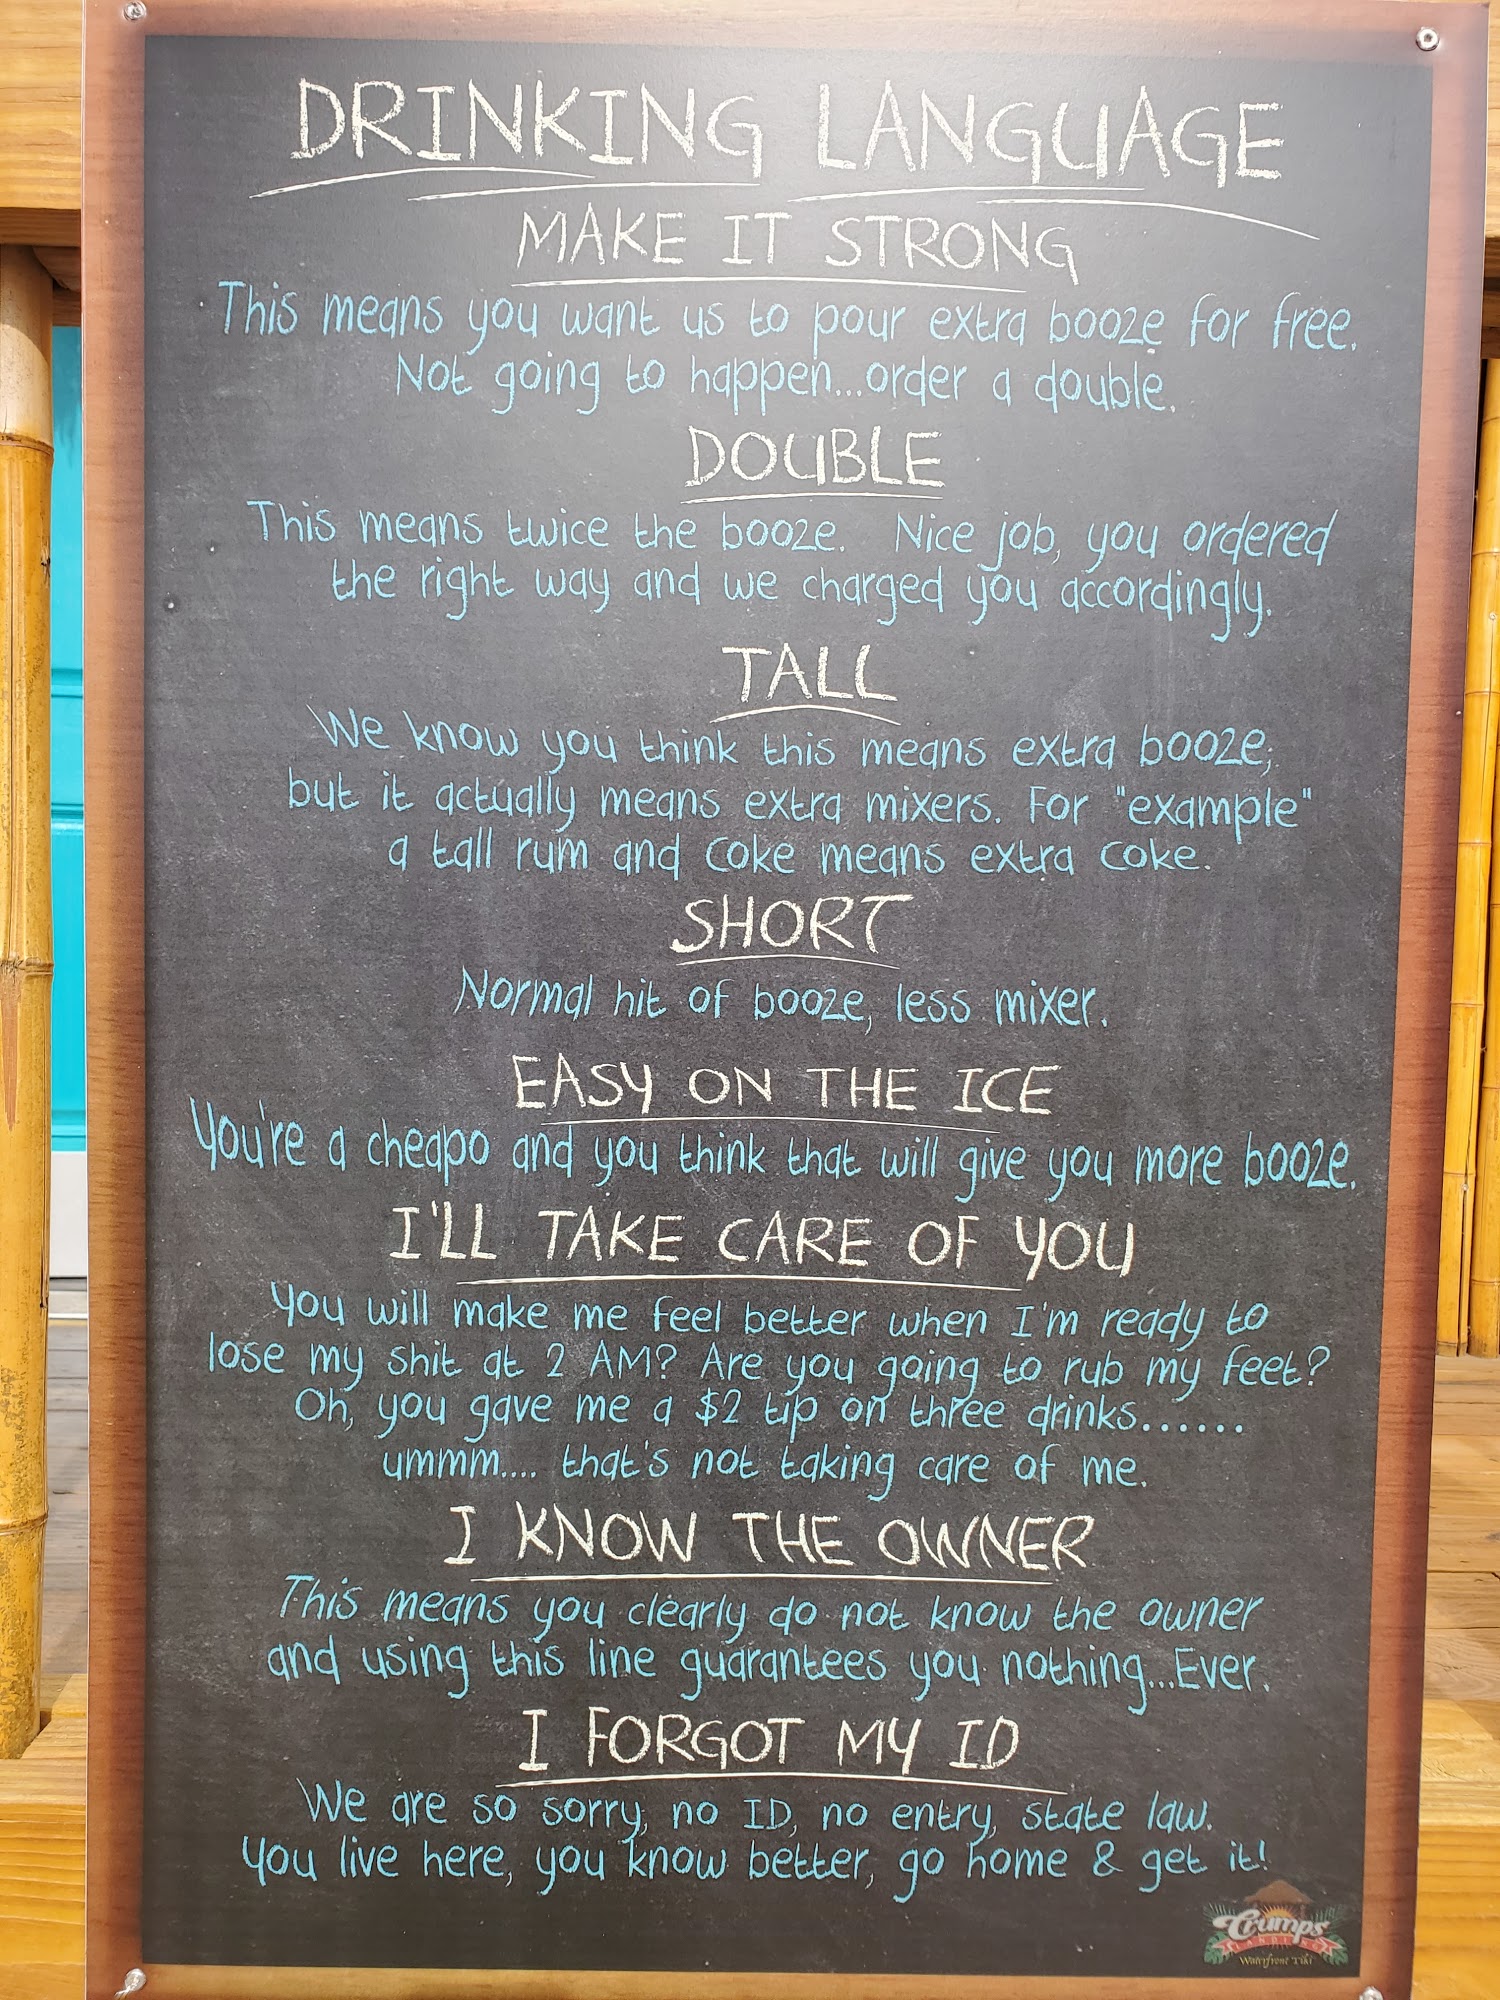 DRINKING LANGUAGE
MAKE IT STRONG
This means you want us to pour extra booze for free.
Not going to happen...order a double.
DOUBLE
This means twice the booze. Nice job, you ordered
the right way and we charged you accordingly.
TALL
We know you think this means extra booze;
but it actually means extra mixers. For "example"
a tall rum and coke means extra coke.
SHORT
Normal hit of booze, less mixer.
EASY ON THE ICE
You're a cheapo and you think that will give you more booze.
I'LL TAKE CARE OF YOU
You will make me feel better when I'm ready to
lose my shit at 2 AM? Are you going to rub my feet?
Oh, you gave me a $2 tip on three drinks......
ummm.... that's not taking care of me.
I KNOW THE OWNER
This means you clearly do not know the owner
and using this line guarantees you nothing...Ever.
I FORGOT MY ID
We are so sorry, no ID, no entry, state law.
You live here, you know better, go home & get it!
Crumps
LANDING
Waterfront Tiki